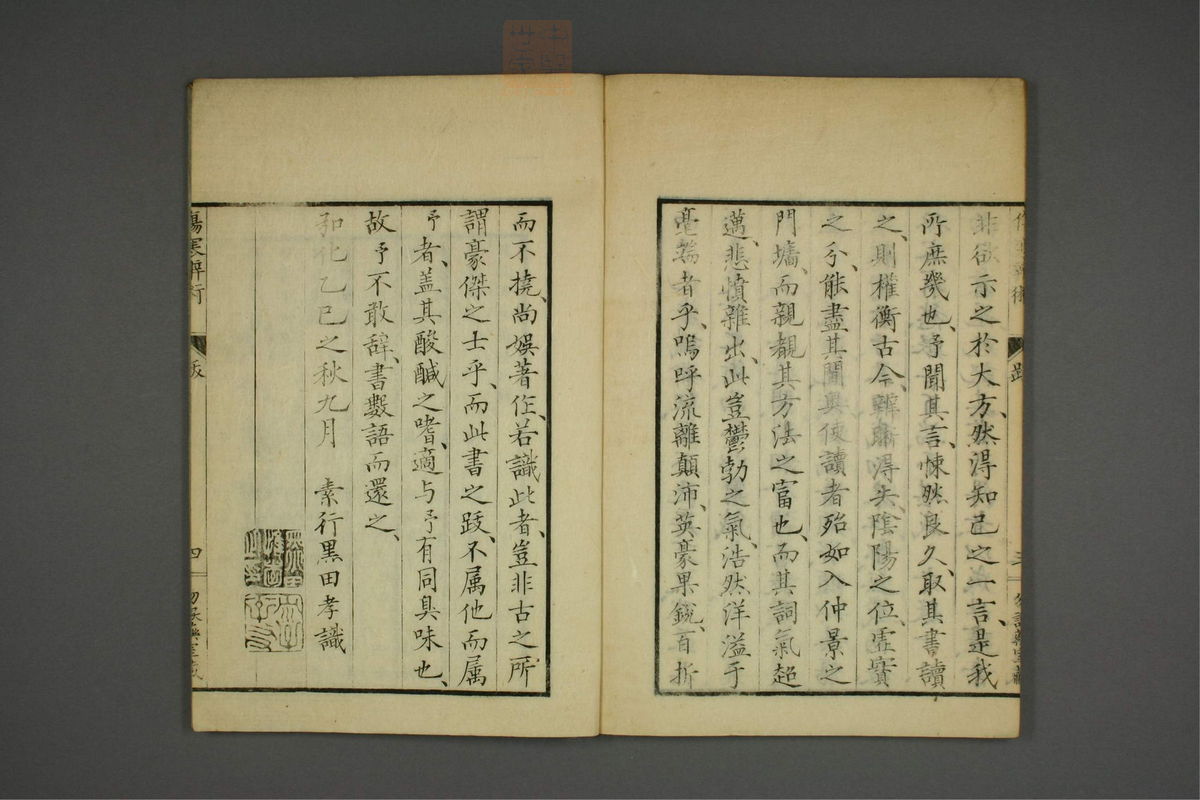 非欲示之於大方、然得知己之一言、是我
所庶幾也、予聞其言、悚然良久、取其書讀
之、則權衡古今、辨論得失、陰陽之位、虛實
之分、能盡其閫奧、使讀者殆如入仲景之
門墻、而親覩其方法之富也、而其詞氣超
邁、悲憤雜出、此豈鬱勃之氣、浩然洋溢于
毫端者乎、嗚呼流離顛沛、英豪果銳、百折
而不撓、尚娯著作、若識此者、豈非古之所
謂豪傑之士乎、而此書之跋、不属他而属
予者、蓋其酸醎之嗜、適与予有同臭味也、
故予不敢辞、書數語而還之、
乙巳之秋九月 素行黒田孝識
傷寒辨術
跋
四